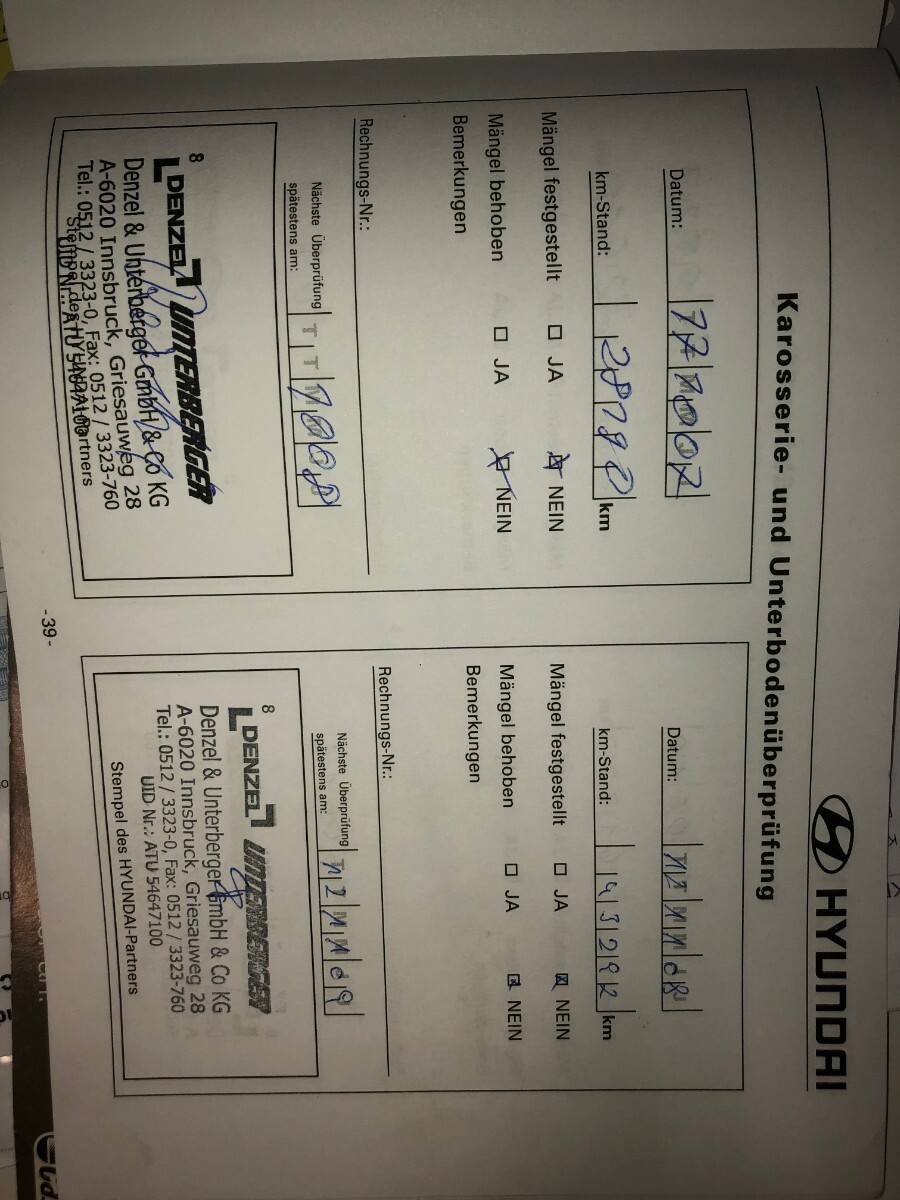 HYUNDAI
Karosserie- und Unterbodenüberprüfung
Datum:
km-Stand: km
Mängel festgestellt JA NEIN
Mängel behoben JA NEIN
Bemerkungen
Rechnungs-Nr.:
Nächste Überprüfung
spätestens am:
8
DENZEL UNTERBERGER
Denzel & Unterberger GmbH & Co KG
A-6020 Innsbruck, Griesauweg 28
Tel.: 0512 / 3323-0, Fax: 0512 / 3323-760
Stempel des HYUNDAI-Partners
UID Nr.: ATU 54647100
Datum: 121108
km-Stand: km
Mängel festgestellt JA NEIN
Mängel behoben JA NEIN
Bemerkungen
Rechnungs-Nr.:
Nächste Überprüfung
spätestens am: 121109
8
DENZEL UNTERBERGER
Denzel & Unterberger GmbH & Co KG
A-6020 Innsbruck, Griesauweg 28
Tel.: 0512 / 3323-0, Fax: 0512 / 3323-760
UID Nr.: ATU 54647100
Stempel des HYUNDAI-Partners
-39-